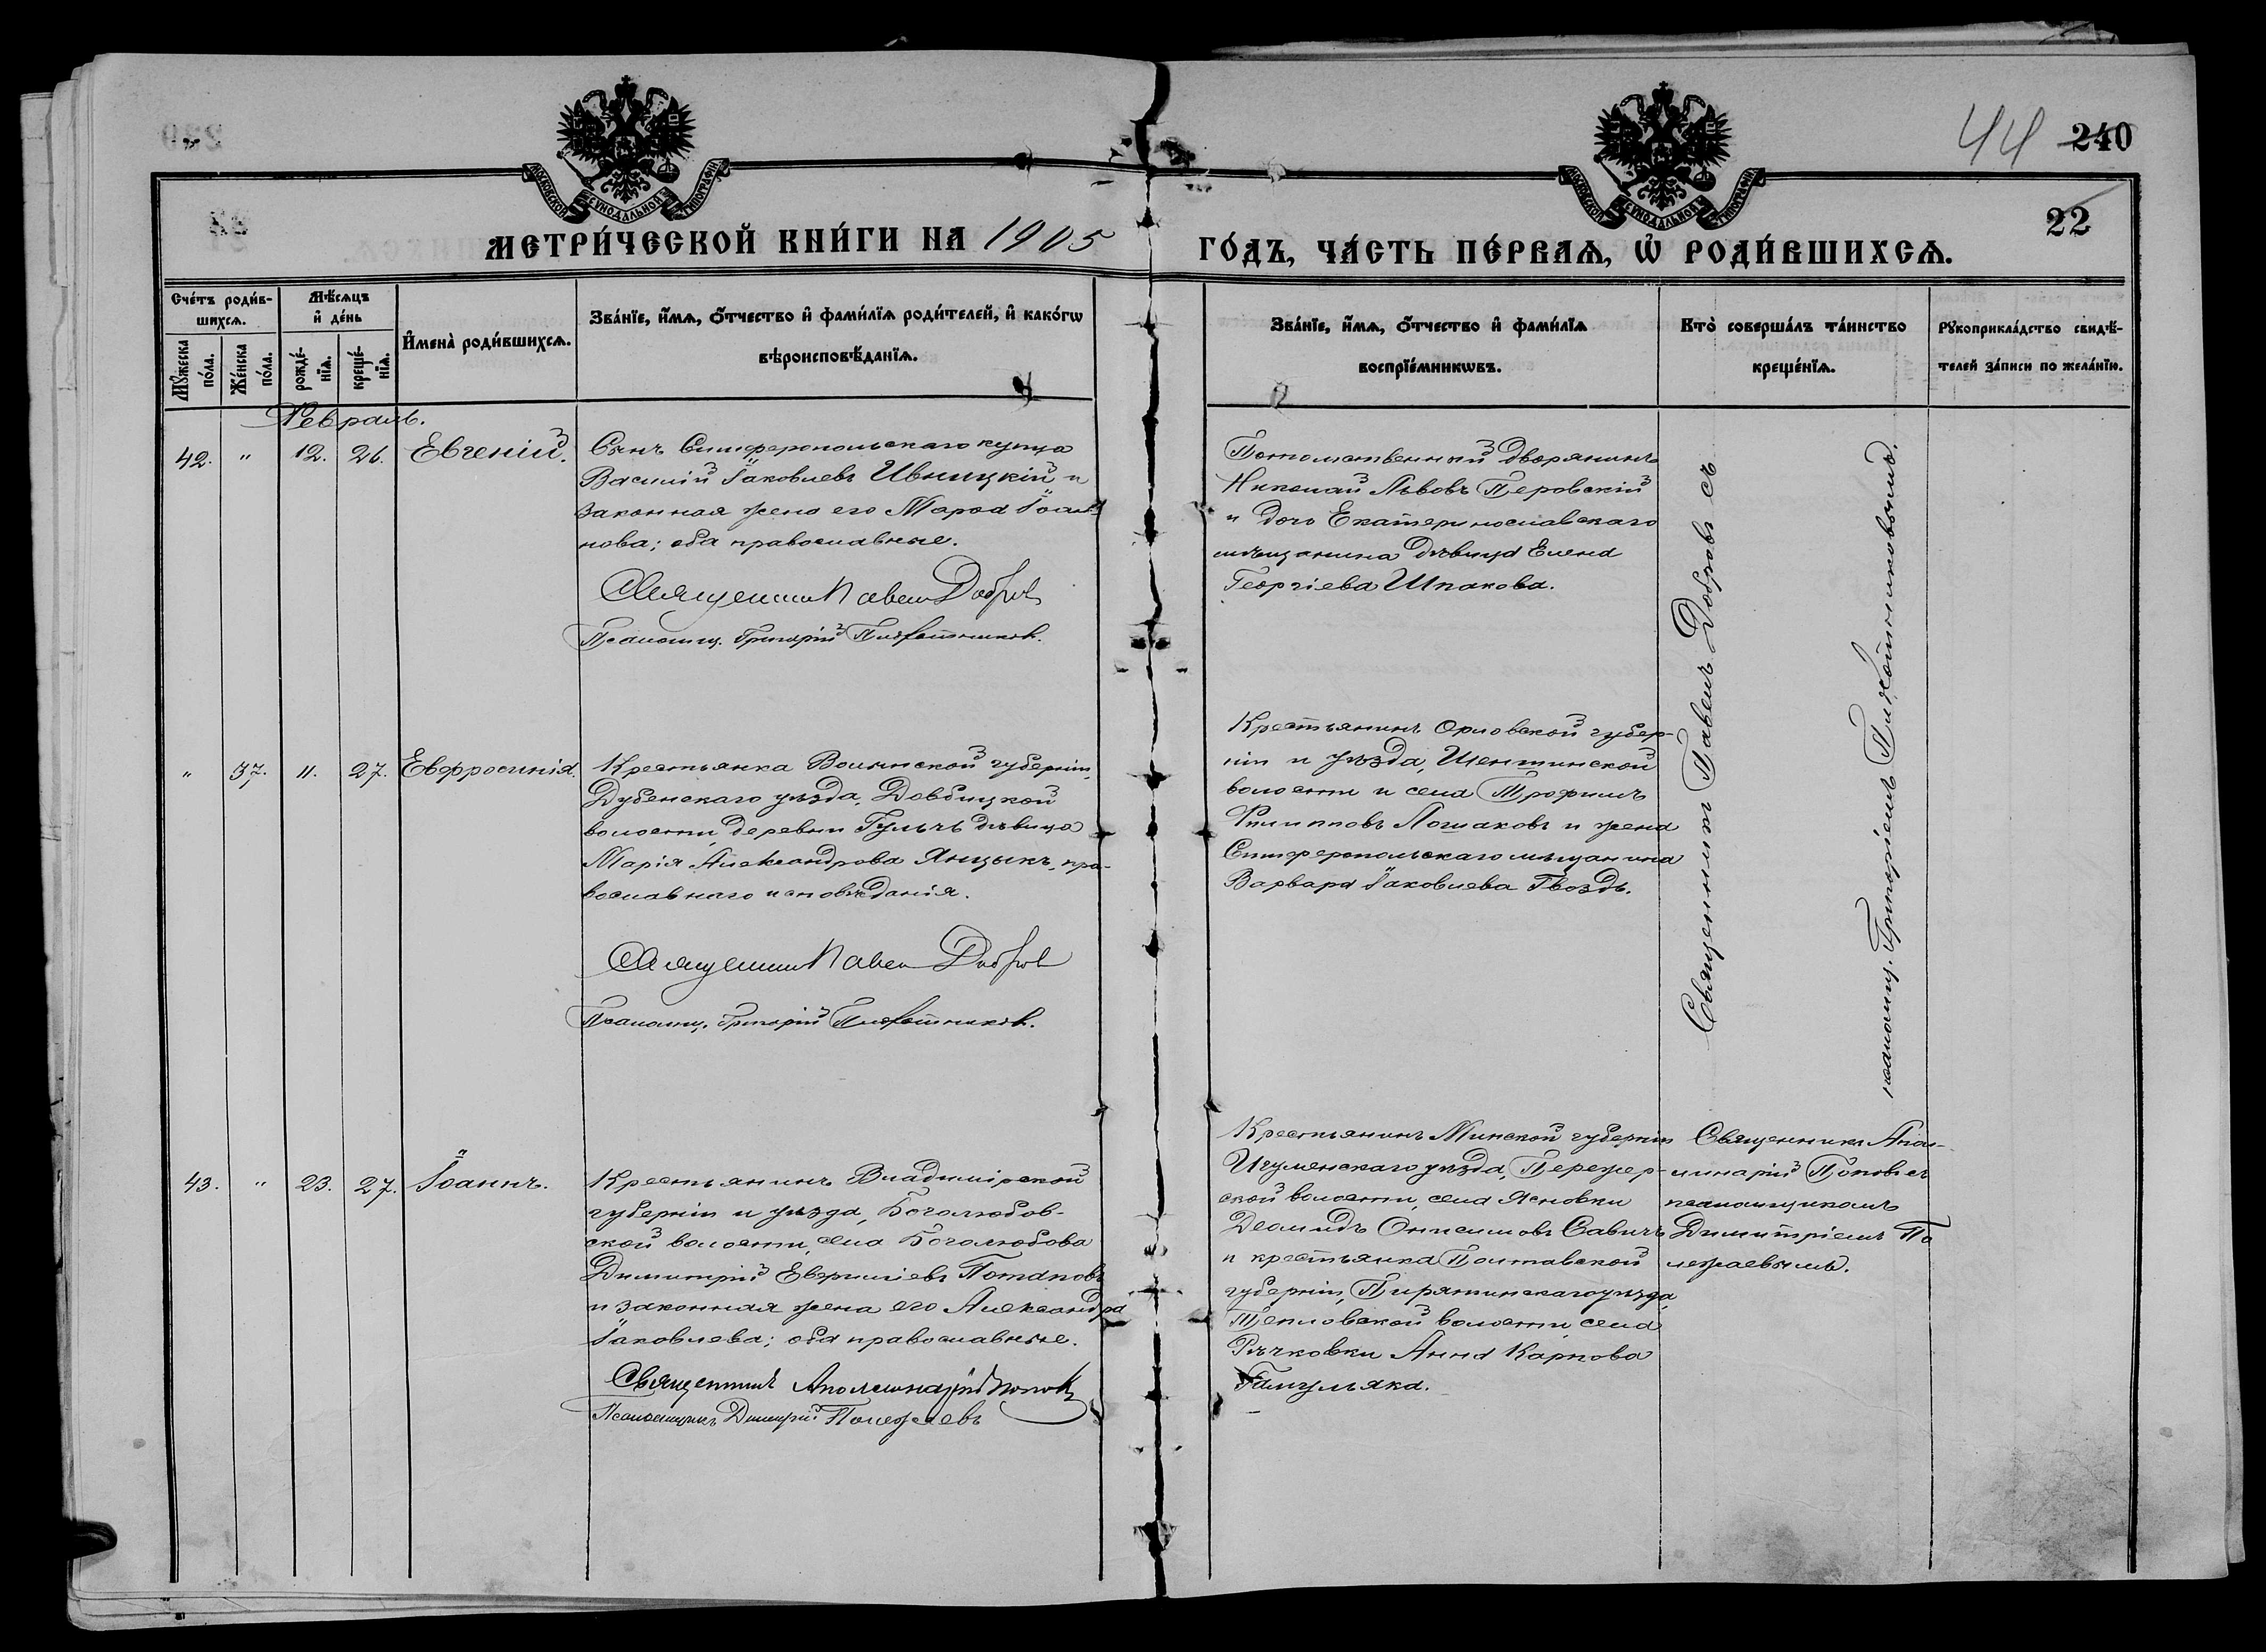 44 240
22
МОСКОВСКОЙ СУНОДАЛЬНОЙ ТИПОГРАФІИ
МОСКОВСКОЙ СУНОДАЛЬНОЙ ТИПОГРАФІИ
МЕТРИ́ЧЕСКОЙ КНИ́ГИ НА 1905 ГО́ДЪ, ЧА́СТЬ ПЕ́РВАѦ, Ѡ҆ РОДИ́ВШИХСѦ.
Сче́тъ роди́в-
шихсѧ.
Мꙋ́жеска по́ла.
Же́нска по́ла.
Мѣ́сѧцъ
и҆ де́нь
рожде́-
нїѧ.
креще́-
нїѧ.
И҆мена̀ роди́вшихсѧ.
Зва́нїе, и҆́мѧ, ѻ҆́тчество и҆ фами́лїѧ роди́телей, и҆ како́гѡ
вѣроисповѣ́данїѧ.
Зва́нїе, и҆́мѧ, ѻ҆́тчество и҆ фами́лїѧ
воспрїе́мникѡвъ.
Кто̀ соверша́лъ та́инство
креще́нїѧ.
Рꙋкоприкла́дство свидѣ́-
телей за́писи по жела́нїю.
Февраль.
42. " 12. 26. Евгеній.
Сынъ Симферопольскаго купца
Василій Іаковлевъ Ивницкій и
законная жена его Марѳа Іоан-
нова; оба православные.
Священник Павел Добров
Псаломщ. Григорій Пихотников.
Потомственный дворянинъ
Николай Львовъ Перовскій
и дочь Екатеринославскаго
мѣщанина дѣвица Елена
Георгіева Шпакова.
Священник Павелъ Добровъ съ
псаломщ. Григоріемъ Пихотниковымъ.
" 37. 11. 27. Евфросинія.
Крестьянка Волынской губерніи,
Дубенскаго уѣзда, Довбицкой
волости, деревни Гульчъ дѣвица
Марія Александрова Янцыкъ, пра-
вославнаго исповѣданія.
Священник Павел Добров
Псаломщ. Григорій Пихотников.
Крестьянинъ Орловской губер-
ніи и уѣзда, Шентинской
волости и села Трофимъ
Филипповъ Лошаковъ и жена
Симферопольскаго мѣщанина
Варвара Іаковлева Гвоздь.
43. " 23. 27. Іоаннъ.
Крестьянинъ Владимірской
губерніи и уѣзда, Боголюбов-
ской волости, села Боголюбова
Димитрій Евфиміевъ Потаповъ
и законная жена его Александра
Іаковлева; оба православные.
Священникъ Аполлинарій Поповъ
Псаломщикъ Димитрій Полежаевъ
Крестьянинъ Минской губерніи
Игуменскаго уѣзда, Пережер-
ской волости, села Ясновки
Деомидъ Онисимовъ Савичъ
и крестьянка Полтавской
губерніи, Пирятинскаго уѣзда,
Тепловской волости, села
Рѣчковки Анна Карпова
Гамульяка.
Священникъ Апол-
линарій Поповъ съ
псаломщикомъ
Димитріемъ По
лежаевымъ.